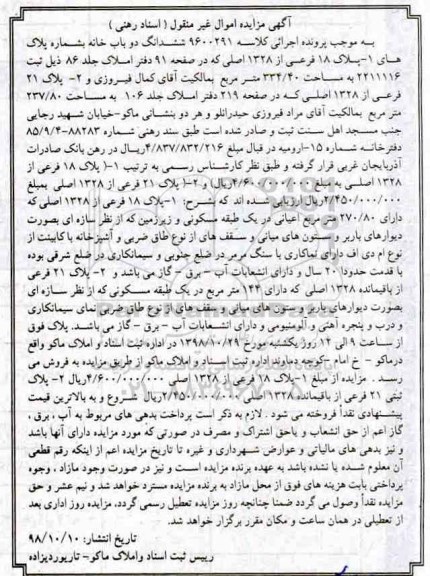 آگهی مزایده اموال غیر منقول ( اسناد رهنی )
به موجب پرونده اجرائی کلاسه ۹۶۰۰۲۹۱ ششدانگ دو باب خانه بشماره پلاک
های ۱-پلاک ۱۸ فرعی از ۱۳۲۸ اصلی که در صفحه ۹۱ دفتر املاک جلد ۸۶ ذیل ثبت
۲۲۱۱۱۱۶ به مساحت ۳۳۴/۴۰ متر مربع بمالکیت آقای کمال فیروزی و ۲- پلاک ۲۱
فرعی از ۱۳۲۸ اصلی که در صفحه ۲۱۹ دفتر املاک جلد ۱۰۶ به مساحت ۲۳۷/۸۰
متر مربع بمالکیت آقای مراد فیروزی حیدرانلو و هر دو بنشانی ماکو-خیابان شهید رجایی
جنب مسجد اهل سنت ثبت و صادر شده است طبق سند رهنی شماره ۸۸۲۸۳-۸۵/۹/۴
دفترخانه شماره ۱۵-ارومیه در قبال مبلغ ۴/۸۳۷/۸۳۲/۲۱۶ریال در رهن بانک صادرات
آذربایجان غربی قرار گرفته و طبق نظر کارشناس رسمی به ترتیب ۱-( پلاک ۱۸ فرعی از
۱۳۲۸ اصلی به مبلغ ۴/۶۰۰/۰۰۰/۰۰۰ریال) و ۲-( پلاک ۲۱ فرعی از ۱۳۲۸ اصلی بمبلغ
۲/۴۵۰/۰۰۰/۰۰۰ریال) ارزیابی شده اند که بشرح: ۱-پلاک ۱۸ فرعی از ۱۳۲۸ اصلی که
دارای ۲۷۰/۸۰ متر مربع اعیانی در یک طبقه مسکونی و زیرزمین که از نظر سازه ای بصورت
دیوارهای باربر و ستون های میانی و سقف های از نوع طاق ضربی و آشپزخانه با کابینت از
نوع ام دی اف دارای نماکاری با سنگ مرمر در ضلع جنوبی و سیمانکاری در ضلع شرقی بوده
با قدمت حدودا ۲۰ سال و دارای انشعابات آب - برق - گاز می باشد و ۲- پلاک ۲۱ فرعی
از باقیمانده ۱۳۲۸ اصلی که دارای ۱۴۴ متر مربع در یک طبقه مسکونی که از نظر سازه ای
بصورت دیوارهای باربر و ستون های میانی و سقف های از نوع طاق ضربی نمای سیمانکاری
و درب و پنجره آهنی و آلومنیومی و دارای انشعابات آب - برق - گاز می باشد. پلاک فوق
از ساعت ۹ الی ۱۲ روز یکشنبه مورخ ۱۳۹۸/۱۰/۲۹ در اداره ثبت اسناد و املاک ماکو واقع
درماکو - خ امام -کوچه دماوند اداره ثبت اسناد و املاک ماکو از طریق مزایده به فروش می
رسد . مزایده از مبلغ ۱-پلاک ۱۸ فرعی از ۱۳۲۸ اصلی ۴/۶۰۰/۰۰۰/۰۰۰ریال ۲- پلاک
ثبتی ۲۱ فرعی از باقیمانده ۱۳۲۸ اصلی ۲/۴۵۰/۰۰۰/۰۰۰ریال شروع و به بالاترین قیمت
پیشنهادی نقداً فروخته می شود . لازم به ذکر است پرداخت بدهی های مربوط به آب ، برق ،
گاز اعم از حق انشعاب و یاحق اشتراک و مصرف در صورتی که مورد مزایده دارای آنها باشد
و نیز بدهی های مالیاتی و عوارض شهرداری و غیره تا تاریخ مزایده اعم از اینکه رقم قطعی
آن معلوم شده یا نشده باشد به عهده برنده مزایده است و نیز در صورت وجود مازاد ، وجوه
پرداختی بابت هزینه های فوق از محل مازاد به برنده مزایده مسترد خواهد شد و نیم عشر و حق
مزایده نقداً وصول می گردد ضمناً چنانچه روز مزایده تعطیل رسمی گردد، مزایده روز اداری بعد
از تعطیلی در همان ساعت و مکان مقرر برگزار خواهد شد.
تاریخ انتشار: ۹۸/۱۰/۱۰
رییس ثبت اسناد واملاک ماکو- تاریوردیزاده